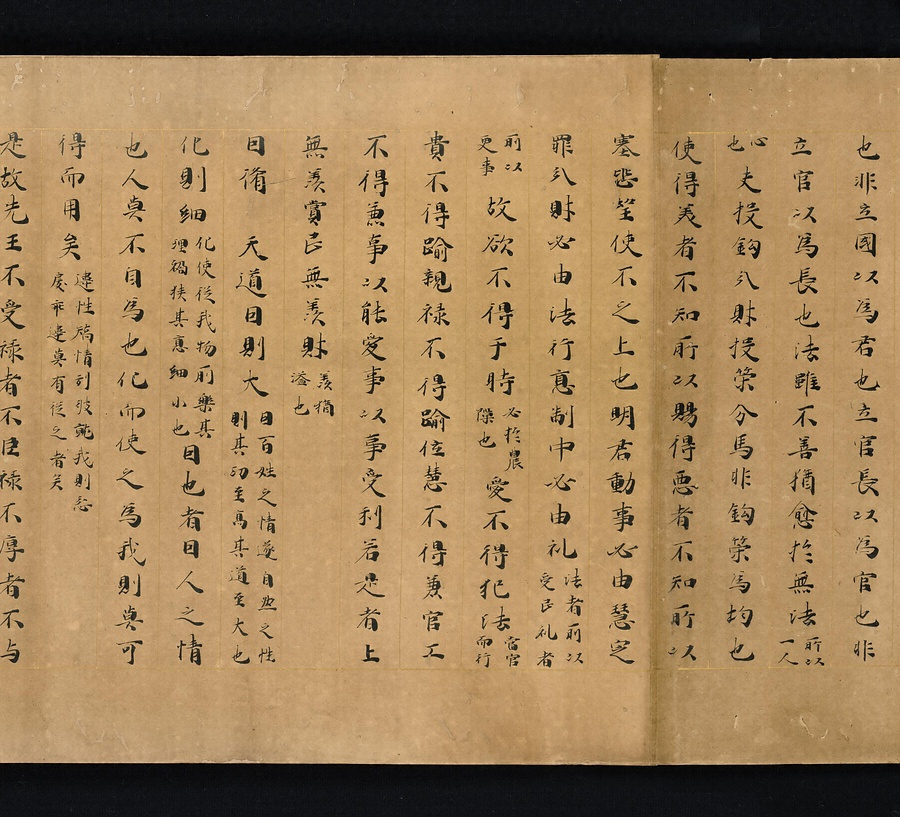 也非立國以爲君也立官長以爲官也非
立官以爲長也法雖不善猶愈於無法所以一人
心也夫投鈎分財投策分馬非鈎策爲均也
使得美者不知所以賜得惡者不知所以
塞怨望使不之上也明君動事必由慧定
罪分財必由法行悳制中必由礼法者所以愛民礼者
所以更事故欲不得干時必於農隙也愛不得犯法當官而行
貴不得踰親禄不得踰位慧不得兼官工
不得兼事以能受事以事受利若是者上
無羨賞民無羨財羨猶溢也
因循天道因則大因百姓之情遂自然之性則其功至高其道至大也
化則細化使從我物所樂其理禍狹其悳細小也因也者因人之情
也人莫不自爲也化而使之爲我則莫可
得而用矣違性矯情引彼就我則忿戾乖違莫有從之者矣
是故先王不受禄者不臣禄不厚者不与